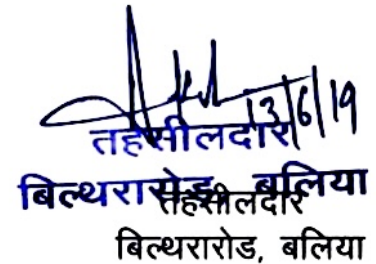 13/6/19
तहसीलदार
बिल्थरारोड, बलिया
तहसीलदार
बिल्थरारोड, बलिया